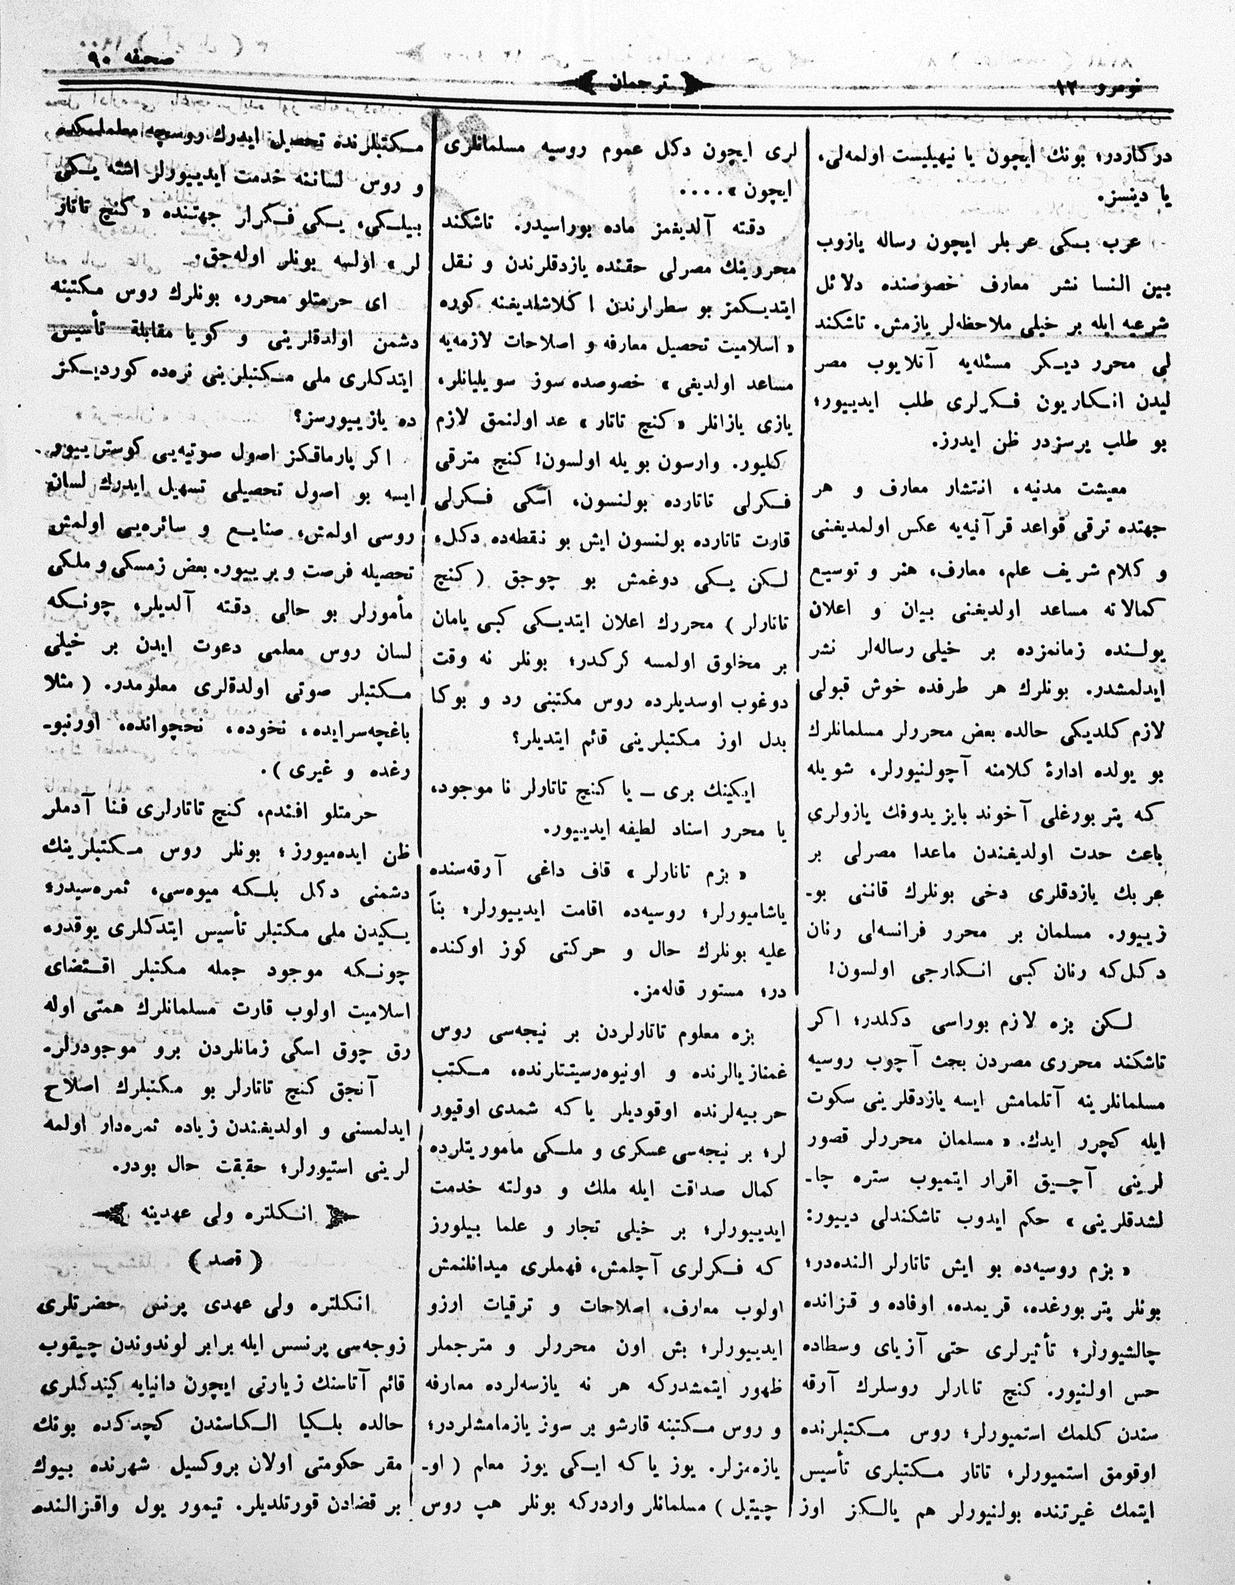 صحیفه ٩٠
ترجمان
نومرو ١٢
در کاردر؛ بونك ایچون یا نیهیلیست اولمه‌لی،
یا دینسز.
عرب بکی عربلر ایچون رساله یازوب
بین النسا نشر معارف خصوصنده دلائل
شرعیه ایله بر خیلی ملاحظه‌لر یازمش. تاشکند
لی محرر دیکر مسئله‌یه آتلایوب مصر
لیدن انکاریون فکرلری طلب ایدییور؛
بو طلب یرسزدر ظن ایدرز.
معیشت مدنیه، انتشار معارف و هر
جهتده ترقی قواعد قرآنیه‌یه عکس اولمدیغنی
و کلام شریف علم، معارف، هنر و توسیع
کمالاته مساعد اولدیغنی بیان و اعلان
یولنده زمانمزده بر خیلی رساله‌لر نشر
ایدلمشدر. بونلرك هر طرفده خوش قبولی
لازم کلدیکی حالده بعض محررلر مسلمانلرك
بو یولده ادارهٔ کلامنه آچولنیورلر، شویله
که پتربورغلی آخوند بایزیدوفك یازولری
باعث حدت اولدیغندن ماعدا مصرلی بر
عربك یازدقلری دخی بونلرك قاننی بو-
زییور. مسلمان بر محرر فرانسه‌لی رنان
دکل‌که رنان کبی انکارجی اولسون!
لکن بزه لازم بوراسی دکلدر؛ اکر
تاشکند محرری مصردن بحث آچوب روسیه
مسلمانلرینه آتلمامش ایسه یازدقلرینی سکوت
ایله کچرر ایدك. «مسلمان محررلر قصور
لرینی آچیق اقرار ایتمیوب ستره چا-
لشدقلرینی» حکم ایدوب تاشکندلی دییور:
«بزم روسیه‌ده بو ایش تاتارلر النده‌در؛
بونلر پتربورغده، قریمده، اوفاده و قزانده
چالشیورلر؛ تأثیرلری حتی آزیای وسطاده
حس اولنیور. کنچ تاتارلر روسلرك آرقه
سندن کلمك استمیورلر؛ روس مکتبلرنده
اوقومق استمیورلر؛ تاتار مکتبلری تأسیس
ایتمك غیرتنده بولنیورلر هم یالکز اوز
لری ایچون دکل عموم روسیه مسلمانلری
ایچون»....
دقته آلدیغمز ماده بوراسیدر. تاشکند
محررینك مصرلی حقنده یازدقلرندن و نقل
ایتدیکمز بو سطرلرندن اکلاشلدیغنه کوره
«اسلامیت تحصیل معارفه و اصلاحات لازمه‌یه
مساعد اولدیغی» خصوصده سوز سویلیانلر،
یازی یازانلر «کنچ تاتار» عد اولنمق لازم
کلیور. وارسون بویله اولسون! کنچ مترقی
فکرلی تاتارده بولنسون، اسکی فکرلی
قارت تاتارده بولنسون ایش بو نقطه‌ده دکل،
لکن یکی دوغمش بو چوجق (کنچ
تاتارلر) محررك اعلان ایتدیکی کبی یامان
بر مخلوق اولمسه کرکدر؛ بونلر نه وقت
دوغوب اوسدیلرده روس مکتبنی رد و بوکا
بدل اوز مکتبلرینی قائم ایتدیلر؟
ایکینك بری ــ یا کنچ تاتارلر نا موجود،
یا محرر اسناد لطیفه ایدییور.
«بزم تاتارلر» قاف داغی آرقه‌سنده
یاشامیورلر؛ روسیه‌ده اقامت ایدییورلر؛ بنأ
علیه بونلرك حال و حرکتی کوز اوکنده
در؛ مستور قاله‌مز.
بزه معلوم تاتارلردن بر نیجه‌سی روس
غمنازیالرنده و اونیوه‌رسیتتارنده، مکتب
حربیه‌لرنده اوقودیلر یا که شمدی اوقیور
لر؛ بر نیجه‌سی عسکری و ملکی مأموریتلرده
کمال صداقت ایله ملك و دولته خدمت
ایدییورلر؛ بر خیلی تجار و علما بیلورز
که فکرلری آچلمش، فهملری میدانلنمش
اولوب معارف، اصلاحات و ترقیات ارزو
ایدییورلر؛ بش اون محررلر و مترجملر
ظهور ایتمشدرکه هر نه یازسه‌لرده معارفه
و روس مکتبنه قارشو بر سوز یازمامشلردر؛
یازه‌مزلر. یوز یا که ایکی یوز معلم (او-
چیتیل) مسلمانلر واردرکه بونلر هپ روس
مکتبلرنده تحصیل ایدرك روسچه معلملکده
و روس لساننه خدمت ایدییورلر اشته یکی
بیلکی، یکی فکرلر جهتنده «کنچ تاتار
لر» اولسه بونلر اوله‌جق.
ای حرمتلو محرر، بونلرك روس مکتبنه
دشمن اولدقلرینی و کویا مقابلة تأسیس
ایتدکلری ملی مکتبلرینی نره‌ده کوردیکز
ده یازییورسز؟
اکر پارماقکز اصول صوتیه‌یی کوسترییور
ایسه بو اصول تحصیلی تسهیل ایدرك لسان
روسی اولمش، صنایع و سائره‌یی اولمش
تحصیله فرصت ویرییور. بعض زمسکی و ملکی
مأمورلر بو حالی دقته آلدیلر، چونکه
لسان روس معلمی دعوت ایدن بر خیلی
مکتبلر صوتی اولدقلری معلومدر. (مثلا
باغچه‌سرایده، نخوده، نخچوانده، اورنبو-
رغده و غیری).
حرمتلو افندم، کنچ تاتارلری فنا آدملر
ظن ایده‌میورز؛ بونلر روس مکتبلرینك
دشمنی دکل بلکه میوه‌سی، ثمره‌سیدر؛
یکیدن ملی مکتبلر تأسیس ایتدکلری یوقدر،
چونکه موجود جمله مکتبلر اقتضای
اسلامیت اولوب قارت مسلمانلرك همتی اوله
رق چوق اسکی زمانلردن برو موجودرلر.
آنجق کنچ تاتارلر بو مکتبلرك اصلاح
ایدلمسنی و اولدیغندن زیاده ثمره‌دار اولمه
لرینی استیورلر؛ حقیقت حال بودر.
انکلتره ولی عهدینه
(قصد)
انکلتره ولی عهدی پرنس حضرتلری
زوجه‌سی پرنسس ایله برابر لوندوندن چیقوب
قائم آتاسنك زیارتی ایچون دانیایه کیتدکلری
حالده بلکیا الکاسندن کچدکده بونك
مقر حکومتی اولان بروکسیل شهرنده بیوك
بر قضادن قورتلدیلر. تیمور یول واقزالنده